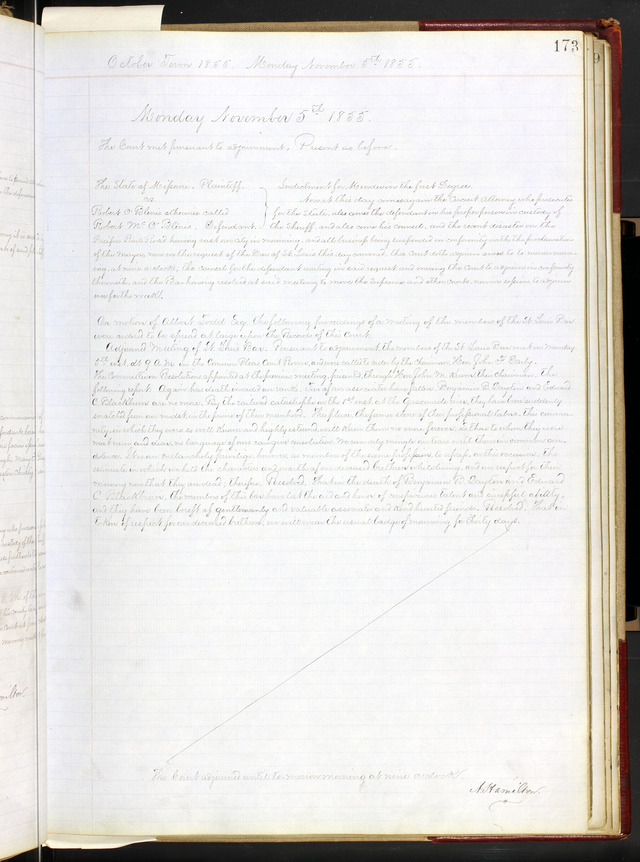 173
October Term 1855. Monday November 5th 1855.
Monday November 5th 1855.
The Court met pursuant to adjournment. Present as before.
The State of Missouri, Plaintiff.
vs
Robert O'Blenis otherwise called
Robert Mc O'Blenis, Defendant.
Indictment for Murder in the first Degree.
Now at this day comes again the Circuit Attorney who prosecutes
for the State, also comes the defendant in his proper person in custody of
the Sheriff, and also comes his counsel, and the recent disaster on the
Pacific Rail Road having cast our city in mourning and all business being suspended in conformity with the proclamation
of the Mayor, now on the request of the Bar of St Louis this day convened, this Court doth adjourn over to to-morrow morn-
ing, at nine o'clock, the counsel for the defendant uniting in said request and moving the Court to adjourn in conformity
therewith, and the Bar having resolved at said meeting to move the Supreme and other courts, now in session to adjourn
over for the week.
On motion of Albert Todd Esq. the following proceedings of a meeting of the members of the St Louis Bar
were ordered to be spread at large upon the Records of this Court.
Adjourned Meeting of St Louis Bar. Pursuant to adjournment the members of the St Louis Bar met on Monday
5th inst. at 9 A.M. in the Common Pleas Court Room, and was called to order by the chairman Hon John F. Darby.
The Committee on Resolutions appointed at the former meeting, presented, through Hon John M. Krum the chairman, the
following report. Again has death invaded our ranks. Two of our associates have fallen. Benjamin B. Dayton and Edward
C. Blackburn are no more. By the railroad catastrophe on the 1st inst. at the Gasconade river, they have been suddenly
snatched from our midst in the prime of their manhood. The place, the former scene of their professional labors, the commu-
nity in which they were so well known and highly esteemed will know them no more forever. To those to whom they were
most near and dear, no language of ours can give consolation. We can only mingle our tears with theirs in common con-
dolence. It is our melancholy privilege however, as members of the same profession, to express, on this occasion, the
estimate in which we held the character and worth of our deceased brethren while living, and our respect for their
memory now that they are dead; therefore, Resolved, That in the death of Benjamin B. Dayton and Edward
C. Blackburn, the members of this bar have lost the aid and honor of conspicuous talent and ability,
and they have been bereft of gentlemanly and valuable associates and kind hearted friends. Resolved, That as a
token of respect for our deceased brethren, we will wear the usual badge of mourning for thirty days.
The Court adjourned until to-morrow morning at nine o'clock.
A Hamilton.